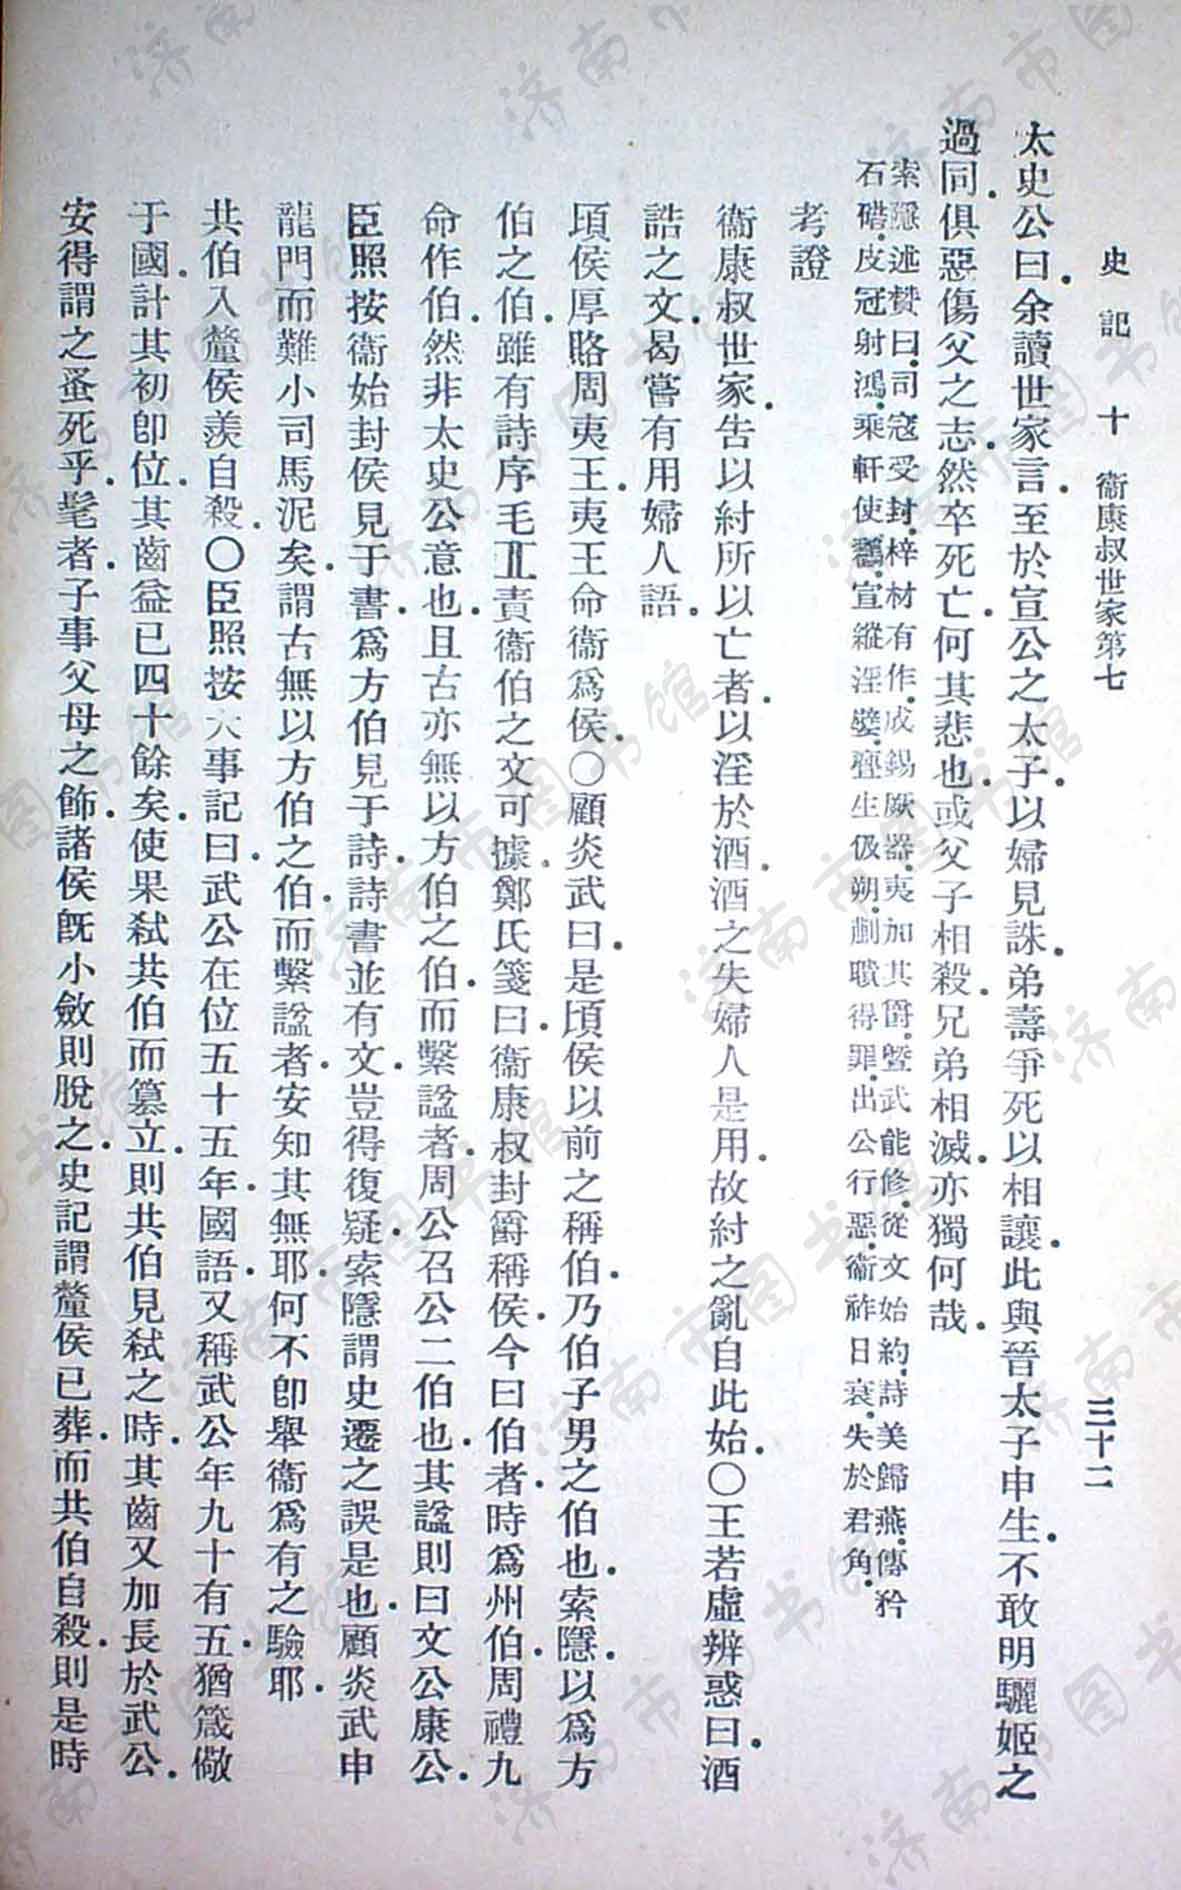 史記 十 衞康叔世家第七 三十二
太史公曰．余讀世家言．至於宣公之太子．以婦見誅．弟壽爭死以相讓．此與晉太子申生．不敢明驪姬之
過同．俱惡傷父之志．然卒死亡．何其悲也．或父子相殺．兄弟相滅．亦獨何哉．
索隱述贊曰．司寇受封．梓材有作．成錫厥器．夷加其爵．曁武能修．從文始約．詩美歸燕．傳矜
石碏．皮冠射鴻．乘軒使鶴．宣縱淫嬖．釁生伋朔．蒯聵得罪．出公行惡．衞祚日衰．失於君角．
考證
衞康叔世家．告以紂所以亡者．以淫於酒．酒之失婦人是用．故紂之亂自此始．〇王若虛辨惑曰．酒
誥之文．曷嘗有用婦人語．
頃侯厚賂周夷王．夷王命衞爲侯．〇顧炎武曰．是頃侯以前之稱伯．乃伯子男之伯也．索隱．以爲方
伯之伯．雖有詩序旄丘責衞伯之文可據．鄭氏箋曰．衞康叔封爵稱侯．今曰伯者．時爲州伯．周禮九
命作伯．然非太史公意也．且古亦無以方伯之伯．而繫謚者．周公召公二伯也．其謚則曰文公康公．
臣照按衞始封侯見于書．爲方伯見于詩．詩書並有文．豈得復疑．索隱謂史遷之誤是也．顧炎武申
龍門而難小司馬泥矣．謂古無以方伯之伯．而繫謚者．安知其無耶．何不卽舉衞爲有之驗耶．
共伯入釐侯羨自殺．〇臣照按大事記曰．武公在位五十五年．國語．又稱武公年九十有五．猶箴儆
于國．計其初卽位．其齒益已四十餘矣．使果弑共伯而簒立．則共伯見弑之時．其齒又加長於武公．
安得謂之蚤死乎．髦者．子事父母之飾．諸侯旣小斂則脫之．史記謂釐侯已葬．而共伯自殺．則是時